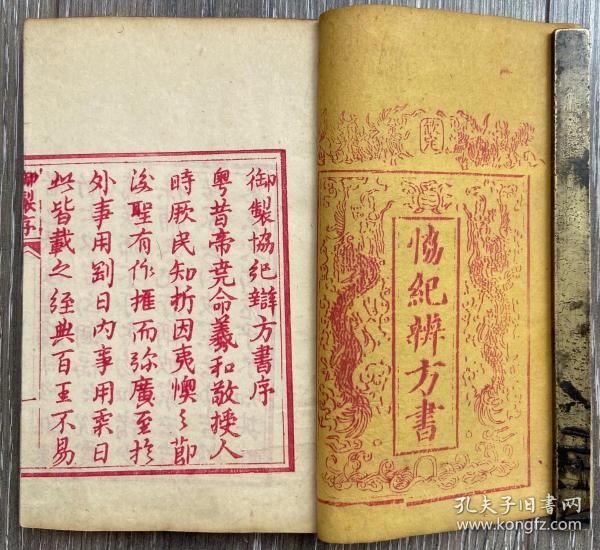 恊紀辨方書
御製恊紀辯方書序
粤昔帝堯命羲和敬授人
時厥民知析因夷隩之節
後聖有作推而弥廣至於
外事用剛日内事用柔日
此皆載之經典百王不易
御製序
一
孔夫子旧书网
www.kongfz.com